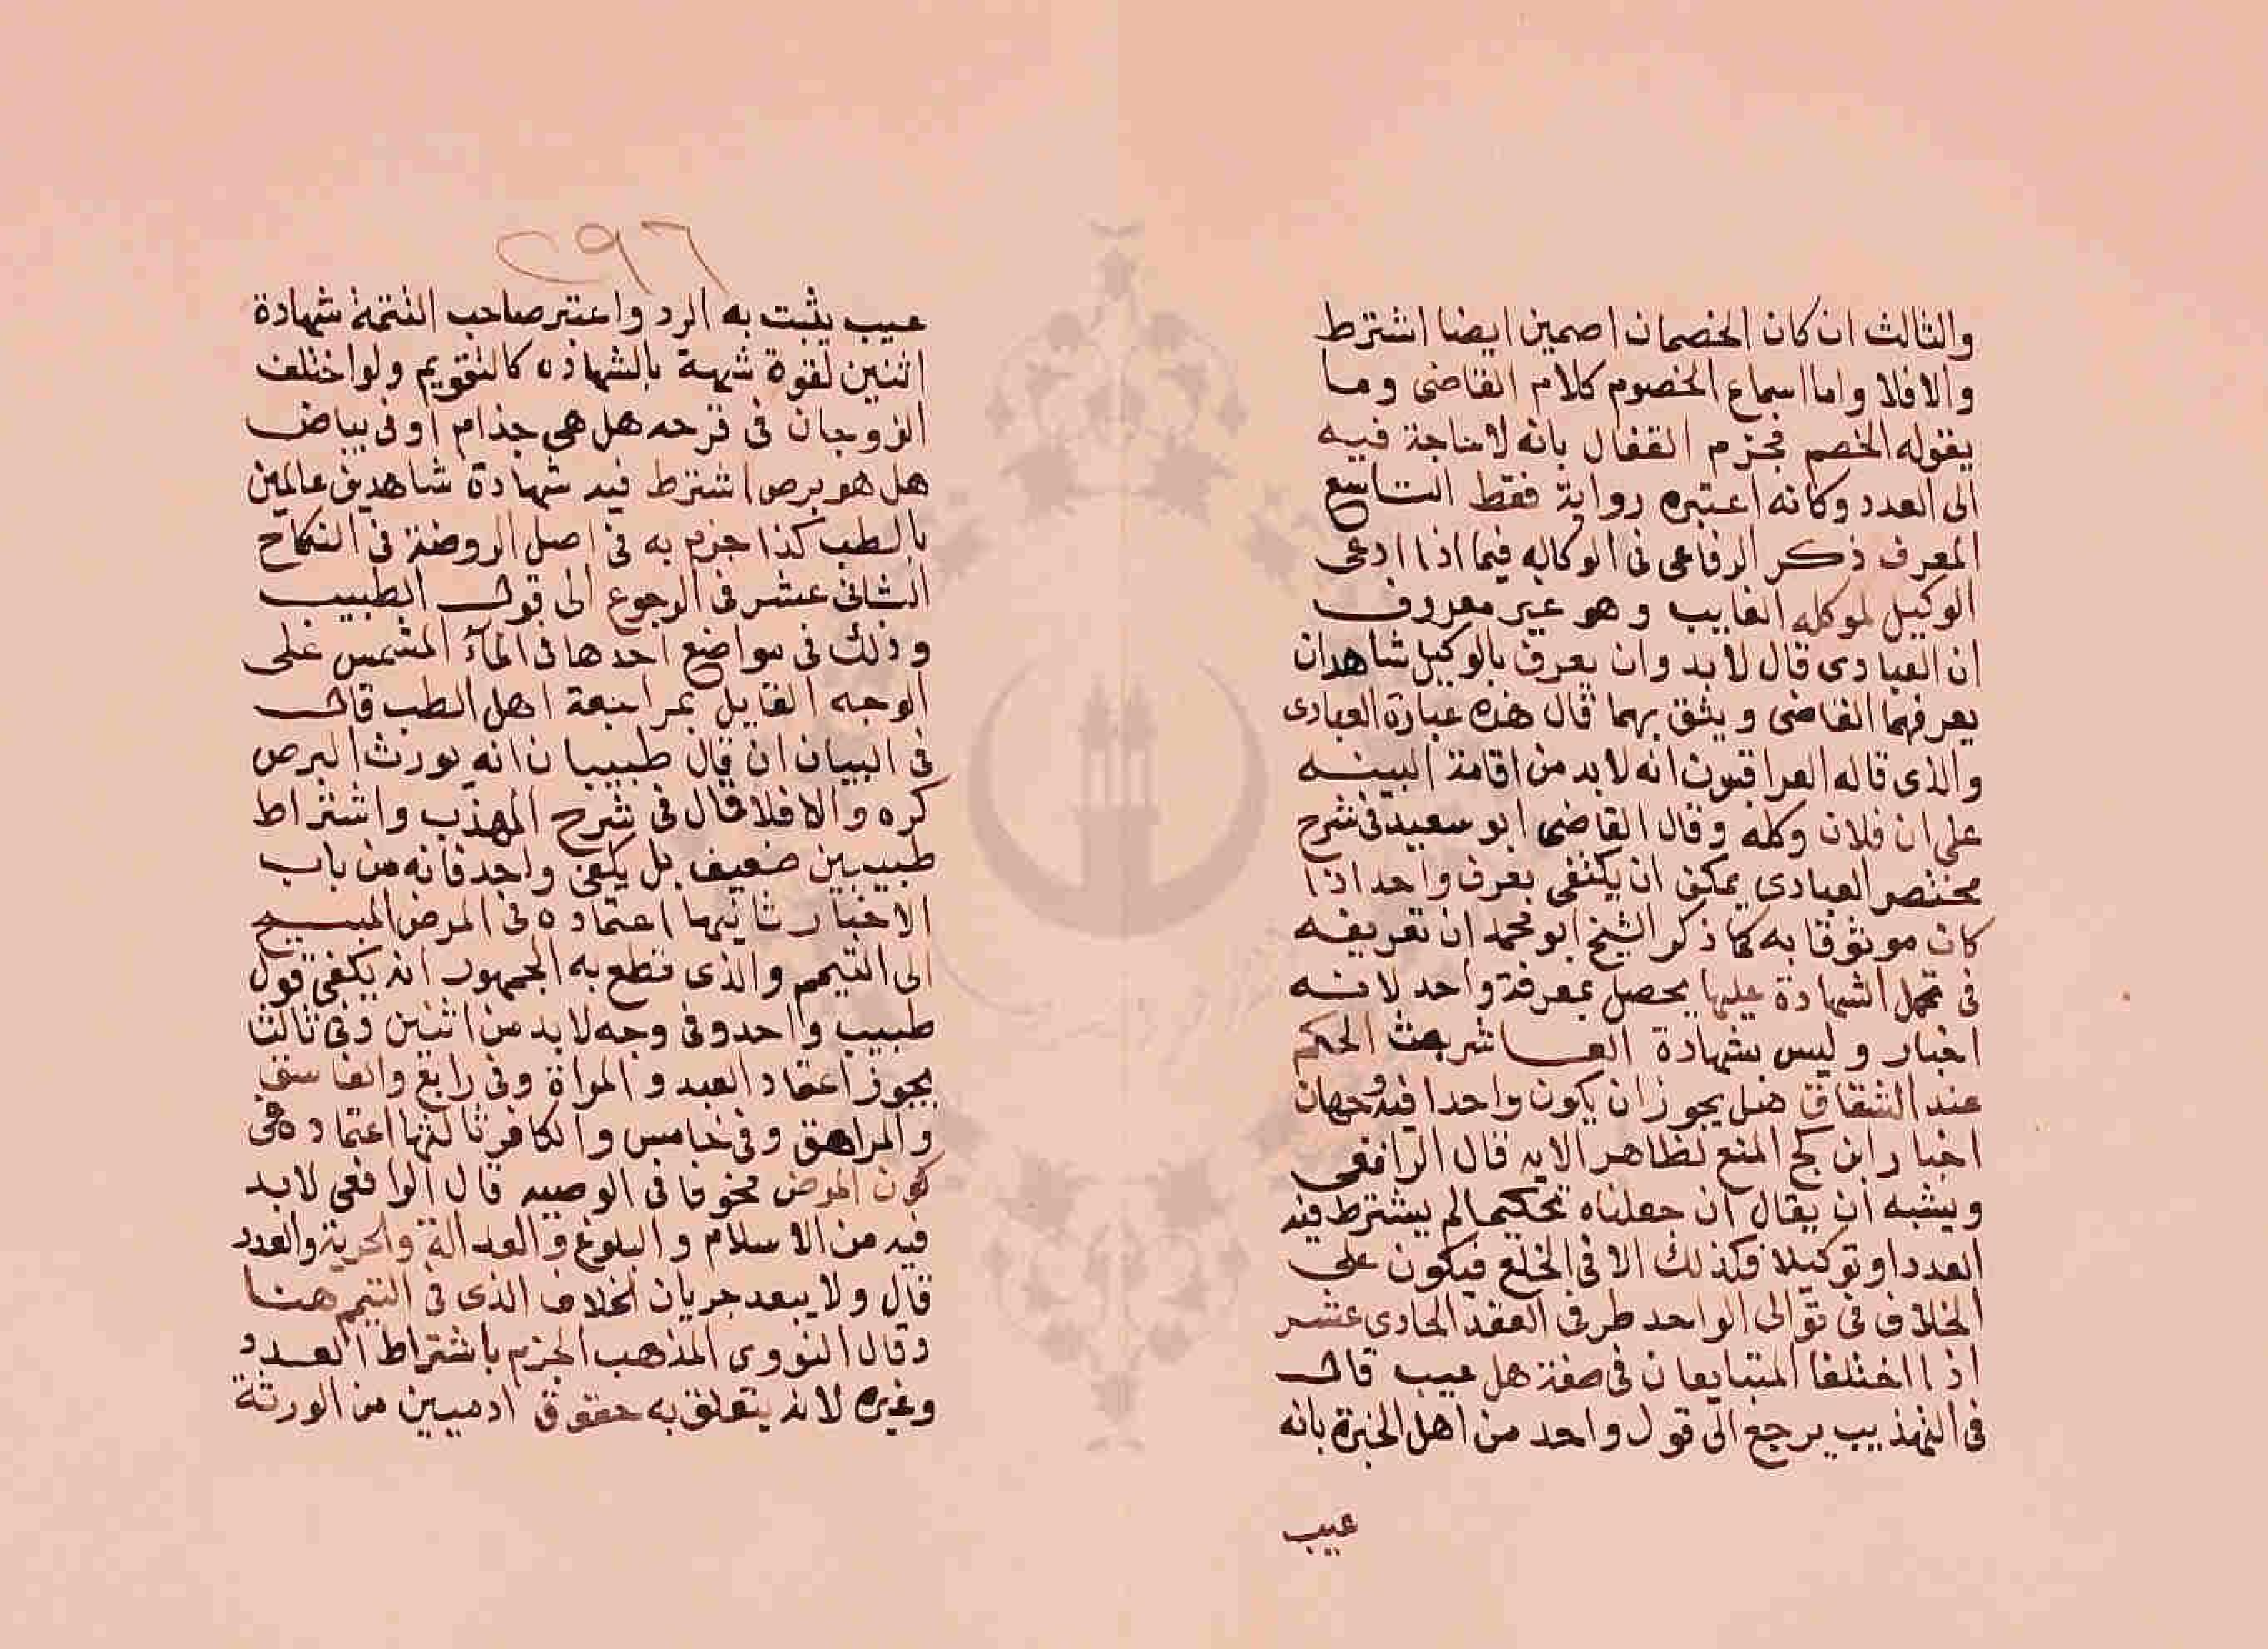 والثالث ان كان الخصمان اصمين ايضا اشترط
والا فلا واما اسماع الخصوم كلام القاضى وما
يقوله الخصم فجزم القفال بانه لا حاجة فيه
الى العدد وكانه اعتبره رواية فقط التاسع
المعرف ذكر الرفاعى فى الوكاله فيما اذا ادعى
الوكيل لموكله الغايب وهو غير معروف
ان العبادى قال لا بد وان يعرف بالوكيل شاهدان
يعرفهما القاضى ويثق بهما قال هذه عبارة العبادى
والذى قاله العراقيون انه لا بد من اقامة البينه
على ان فلان وكله وقال القاضى ابو سعيد فى شرح
مختصر العبادى يمكن ان يكتفى بعرف واحد اذا
كان موثوقا به كما ذكر الشيخ ابو محمد ان تعريفه
فى تحمل الشهادة عليها يحصل بمعرفة واحد لانه
اخبار وليس بشهادة العاشر بعث الحكم
عند الشقاق هل يجوز ان يكون واحدا فيه وجهان
اخبار ابن كج المنع لظاهر الايه قال الرافعى
ويشبه ان يقال ان جعلناه تحكيما لم يشترط فيه
العدد او توكيلا فكذلك الا فى الخلع فيكون على
الخلاف فى توالى الواحد طرفى العقد الحادى عشر
اذا اختلفا المتبايعان فى صفة هل عيب قال
فى التهذيب يرجع الى قول واحد من اهل الخبرة بانه
عيب
٢٩٦
عيب يثبت به الرد واعتبر صاحب التتمة شهادة
اثنين لقوة شبهة بالشهاده كالتقويم ولو اختلف
الزوجان فى قرحه هل هى جذام او فى بياض
هل هو برص اشترط فيه شهادة شاهدين عالمين
بالطب كذا جزم به فى اصل الروضة فى النكاح
الثانى عشر فى الرجوع الى قول الطبيب
وذلك فى مواضع احدها فى الماء المشمس على
الوجه القايل بمراجعة اهل الطب قال
فى البيان ان قال طبيبان انه يورث البرص
كره والا فلا قال فى شرح المهذب واشتراط
طبيبين ضعيف بل يكفى واحد فانه من باب
الاخبار ثانيها اعتماده فى المرض المبيح
الى التيمم والذى قطع به الجمهور انه يكفى قول
طبيب واحد وفى وجه لا بد من اثنين وفى ثالث
يجوز اعتماد العبد والمراة وفى رابع والفاسق
والمراهق وفى خامس والكافر ثالثها اعتماده فى
كون المرض مخوفا فى الوصيه قال الرافعى لا بد
فيه من الاسلام والبلوغ والعدالة والحرية والعدد
قال ولا يبعد جريان الخلاف الذى فى التيمم هنا
وقال النووى المذهب الجزم باشتراط العدد
وغيره لانه يتعلق به حقوق ادميين من الورثة